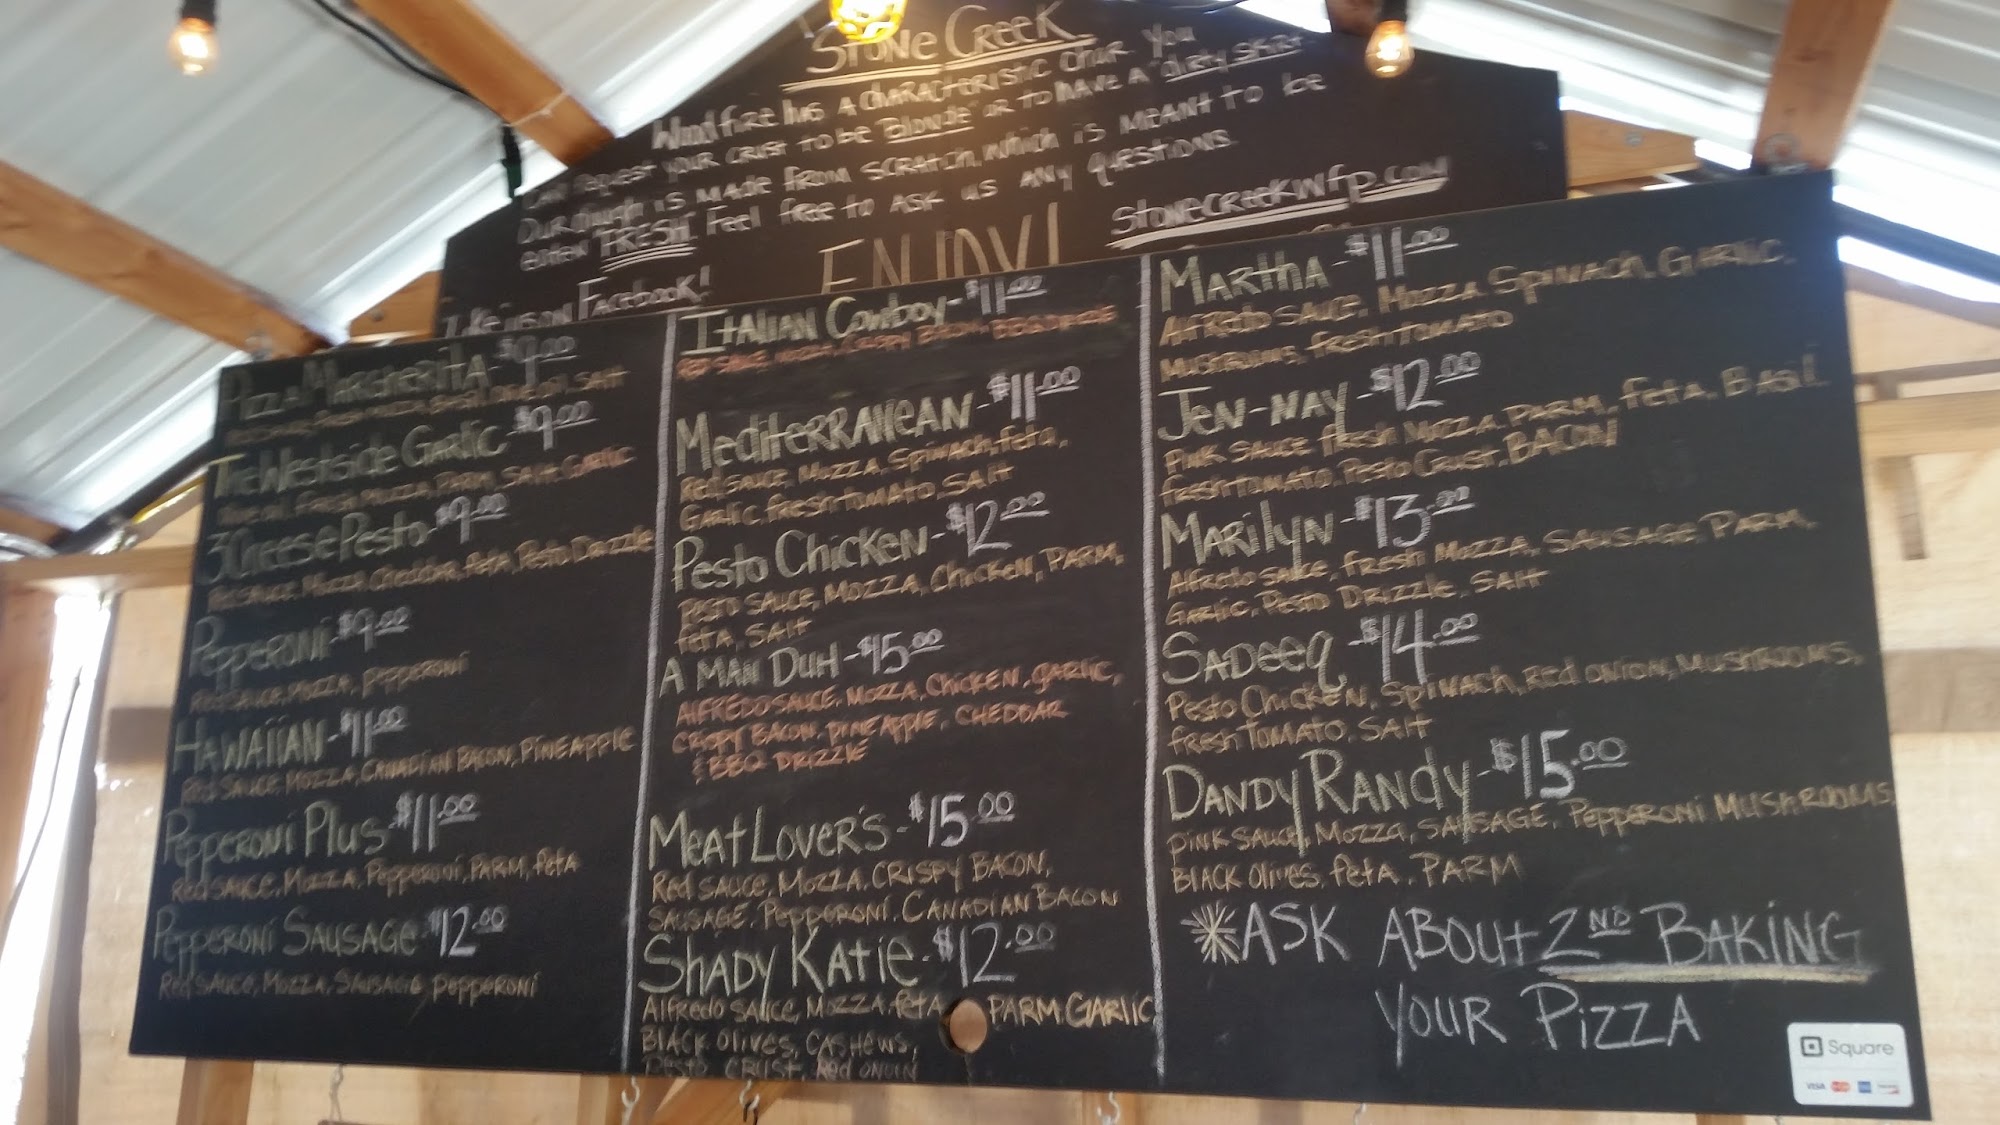 STONE CREEK
Wood fire has a characteristic char. You
can request your crust to be "Blonde" or to have a "dirty skirt"
Our dough is made from scratch, which is meant to be
eaten "FRESH" Feel free to ask us any questions.
ENJOY!
stonecreekwfp.com
Like us on Facebook!
Pizza Margherita - $9.00
Basil, Salt
The Westside Garlic - $9.00
Fresh Mozza, Parm, Salt, Garlic
3 Cheese Pesto - $9.00
Red Sauce, Mozza, Cheddar, feta, Pesto Drizzle
Pepperoni - $9.00
Red Sauce, Mozza, Pepperoni
Hawaiian - $11.00
Red Sauce, Mozza, Canadian Bacon, Pineapple
Pepperoni Plus - $11.00
Red Sauce, Mozza, Pepperoni, Parm, feta
Pepperoni Sausage - $12.00
Red Sauce, Mozza, Sausage, Pepperoni
Italian Cowboy - $11.00
Red Sauce, Mozza, Crispy Bacon,
Mediterranean - $11.00
Red Sauce, Mozza, Spinach, feta,
Garlic, fresh tomato, Salt
Pesto Chicken - $12.00
Pesto Sauce, Mozza, Chicken, Parm,
feta, Salt
A Man Duh - $15.00
Alfredo Sauce, Mozza, Chicken, garlic,
crispy bacon, pineapple, cheddar
& BBQ Drizzle
Meat Lover's - $15.00
Red Sauce, Mozza, Crispy Bacon,
Sausage, Pepperoni, Canadian Bacon
Shady Katie - $12.00
Alfredo Sauce, Mozza, feta, Parm, Garlic
Black Olives, Cashews,
Pesto Crust, Red Onion
Martha - $11.00
Alfredo Sauce, Mozza, Spinach, Garlic,
Mushrooms, fresh tomato
Jen-Nay - $12.00
Pink Sauce, fresh Mozza, Parm, feta, Basil
fresh tomato, Pesto Crust, Bacon
Marilyn - $13.00
Alfredo Sauce, fresh Mozza, Sausage, Parm,
Garlic, Pesto Drizzle, Salt
Sadeeq - $14.00
Pesto Chicken, Spinach, Red onion, Mushrooms,
fresh Tomato, Salt
Dandy Randy - $15.00
Pink Sauce, Mozza, Sausage, Pepperoni Mushrooms,
Black Olives, feta, Parm
*ASK ABOUT 2ND BAKING
YOUR PIZZA
Square
VISA